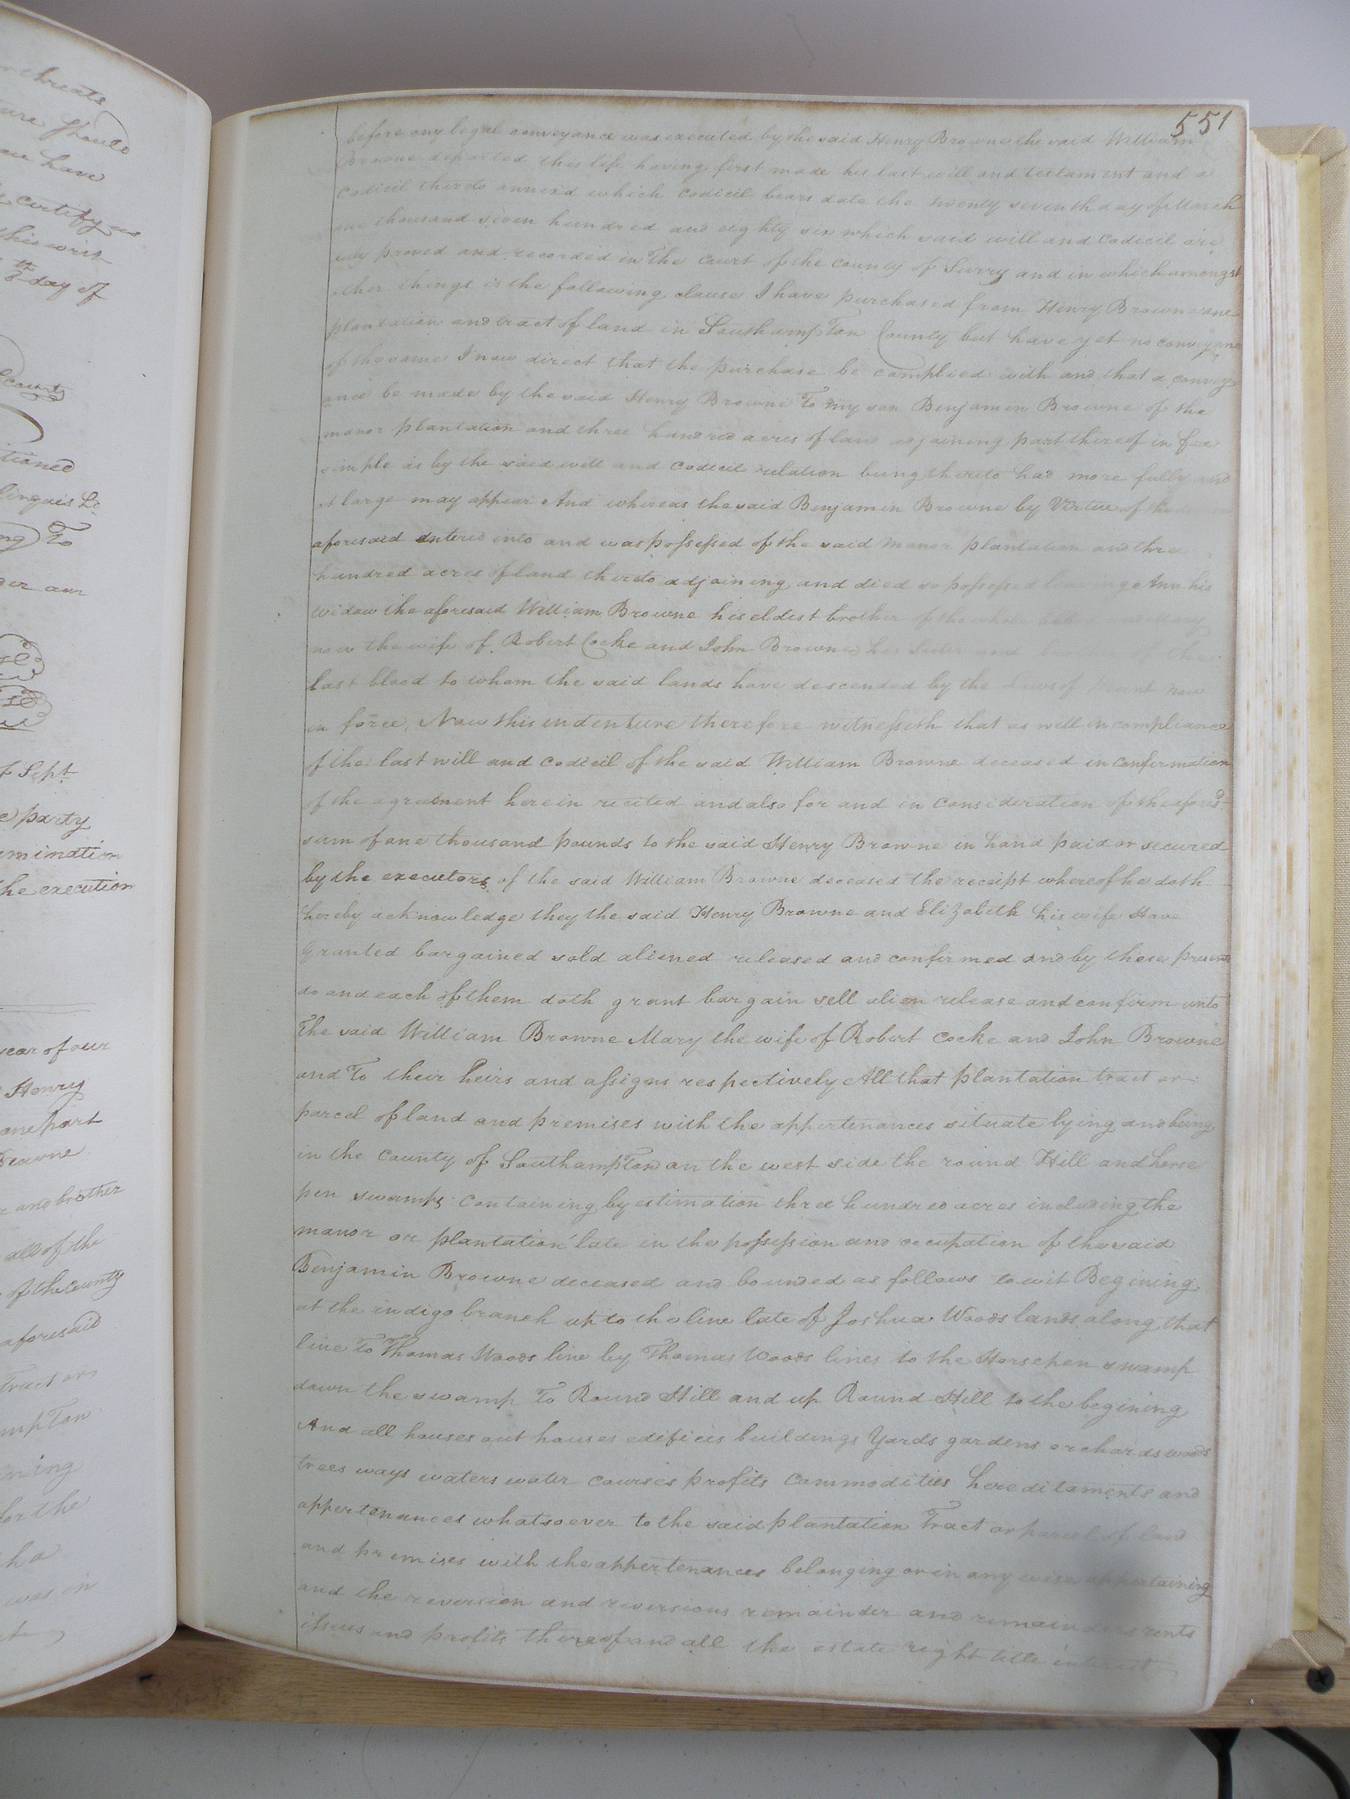 threats
ture should
you have
certify us
this writ
th day of
County
tioned
linquis h
ng To
der our
of Sept
party
amination
the execution
year of our
Henry
one part
Browne
and brother
all of the
of the County
aforesaid
Tract or
mpTon
ning
for the
h a
was in
551
before any legal conveyance was executed by the said Henry Browne the said William
Browne departed this life having first made his last will and testament and a
Codicil thereto annexed which Codicil bears date the twenty seventh day of March
one thousand seven hundred and eighty six which said will and Codicil are
proved and recorded in The Court of the County of Surry and in which amongst
other things is the following clause I have purchased from Henry Browne one
plantation and tract of land in SouthampTon County but have yet no conveyance
of the same I now direct that the purchase be complied with and that a convey
ance be made by the said Henry Browne To my son Benjamin Browne of the
manor plantation and three hundred acres of land adjoining part thereof in fee
simple as by the said will and Codicil relation being thereto had more fully and
at large may appear And whereas the said Benjamin Browne by Virtue of the
aforesaid entered into and was possessed of the said manor plantation and three
hundred acres of land thereto adjoining and died so possessed leaving Ann his
widow the aforesaid William Browne his eldest brother of the whole blood and Mary
now the wife of Robert Cocke and John Browne his sister and brother of the
last blood to whom the said lands have descended by the Laws of now
in force, Now this indenture therefore witnesseth that as well in compliance
of the last will and codicil of the said William Browne deceased in confirmation
of the agreement herein recited and also for and in consideration of the afores.d
sum of one thousand pounds to the said Henry Browne in hand paid or secured
by the executors of the said William Browne deceased the receipt whereof he doth
hereby acknowledge they the said Henry Browne and Elizabeth his wife Have
Granted bargained sold aliened released and confirmed and by these presents
do and each of them doth grant bargain sell alien release and confirm unto
The said William Browne Mary the wife of Robert Cocke and John Browne
and To their heirs and assigns respectively All that plantation tract or
parcel of land and premises with the appertenances situate lying and being
in the County of SouthampTon on the west side the round Hill and horse
pen swamps containing by estimation three hundred acres including the
manor or plantation late in the possession and occupation of the said
Benjamin Browne deceased and bounded as follows to wit Begining
at the indigo branch up to the line late of Joshua Woods lands along that
line To Thomas Woods line by Thomas Woods lines to the Horsepen swamp
down the swamp To Round Hill and up Round Hill to the begining
And all houses out houses edifices buildings Yards gardens orchards woods
trees ways waters water courses profits Commodities hereditaments and
appertenances whatsoever to the said plantation Tract or parcel of land
and premises with the appertenances belonging or in any wise appertaining
and the reversion and reversions remainder and remainders rents
issues and profits thereof and all the estate right title interest